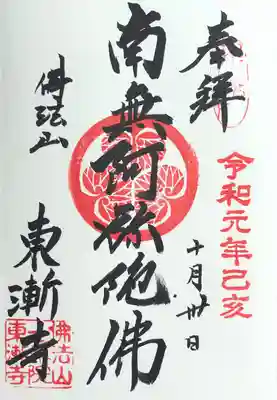 奉拝
令和元年己亥
十月卅日
南無阿弥陀佛
佛法山
東漸寺
佛法山
一乗院
東漸寺